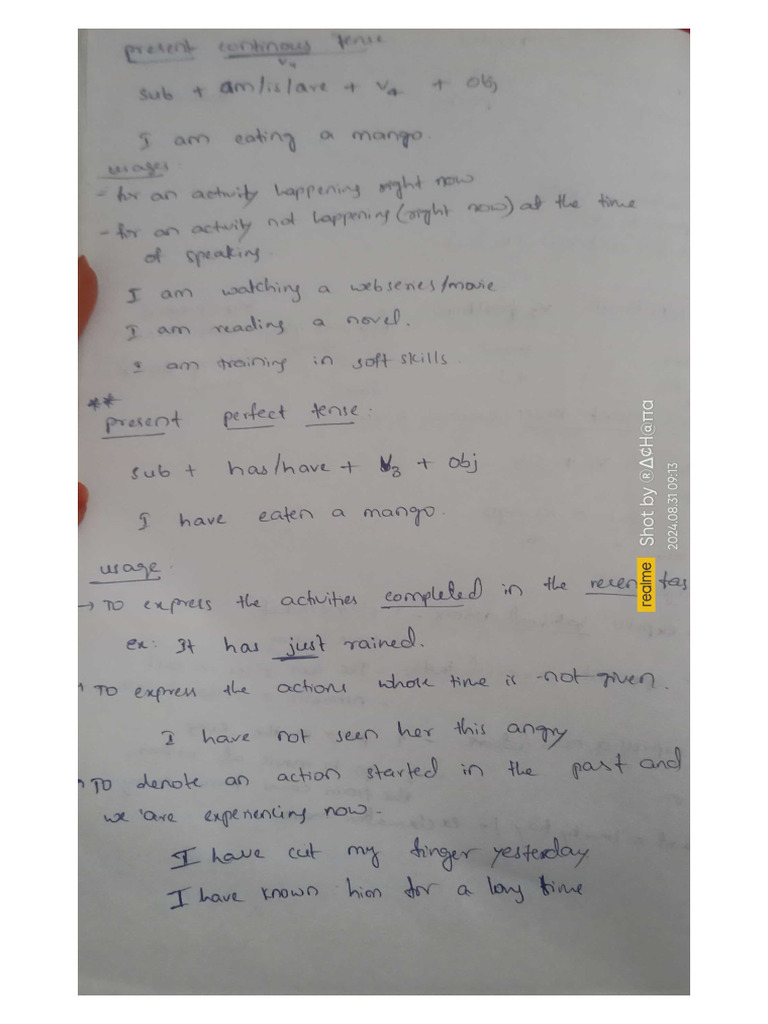 present continous tense
v4
sub + am/is/are + v4 + obj
I am eating a mango.
usages
- for an activity happening right now
- for an activity not happening (right now) at the time
of speaking.
I am watching a webseries/movie
I am reading a novel.
I am training in soft skills
** present perfect tense:
sub + has/have + V3 + obj
I have eaten a mango.
usage
→ TO express the activities completed in the recent
ex: It has just rained.
TO express the actions whose time is not given.
I have not seen her this angry
TO denote an action started in the past and
we are experiencing now-
I have cut my finger yesterday
I have known him for a long time
realme Shot by ®Δ¢H@ππα
2024.08.31 09:13